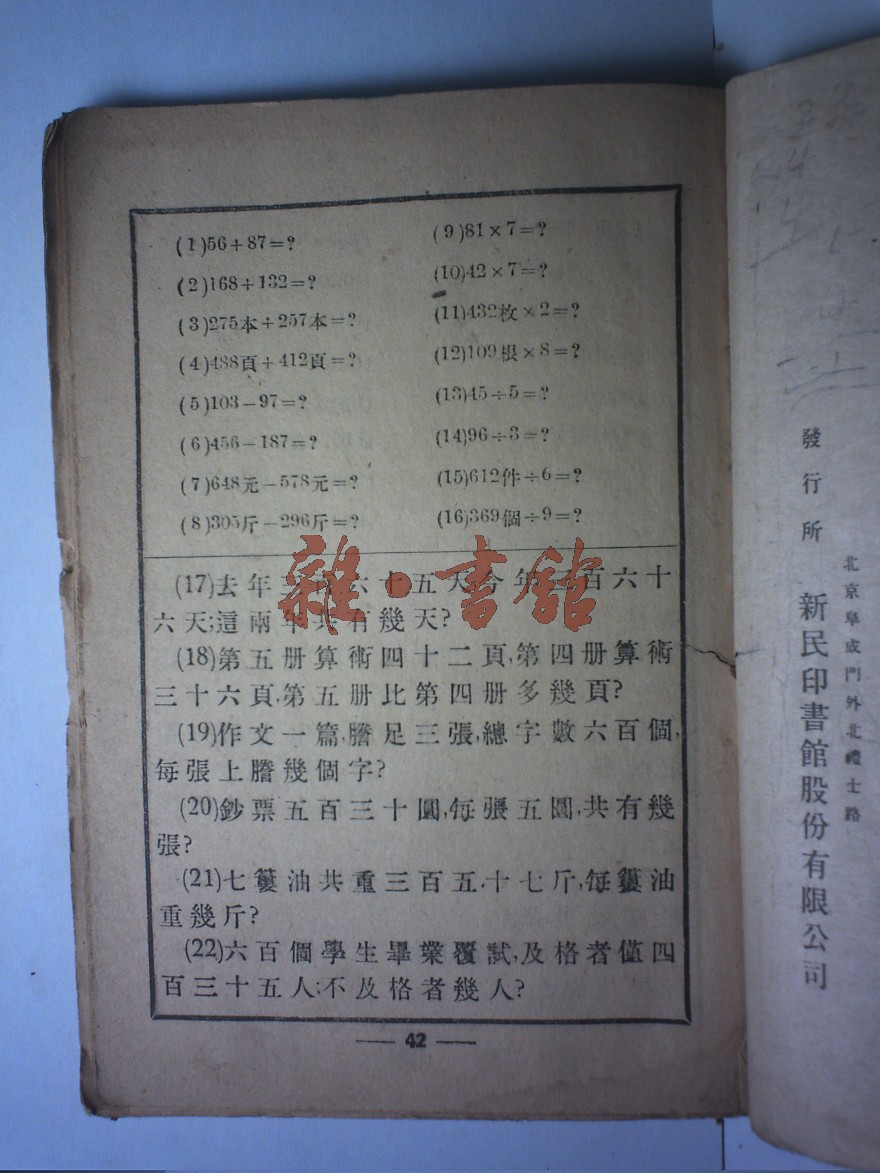 (1)56+87=?
(2)168+132=?
(3)275本+257本=?
(4)488頁+412頁=?
(5)103-97=?
(6)456-187=?
(7)648元-578元=?
(8)305斤-296斤=?
(9)81×7=?
(10)42×7=?
(11)432枚×2=?
(12)109根×8=?
(13)45÷5=?
(14)96÷3=?
(15)612件÷6=?
(16)369個÷9=?
(17)去年三百六十五天今年三百六十
六天;這兩年共有幾天?
(18)第五册算術四十二頁,第四册算術
三十六頁,第五册比第四册多幾頁?
(19)作文一篇,謄足三張,總字數六百個,
每張上謄幾個字?
(20)鈔票五百三十圓,每張五圓,共有幾
張?
(21)七簍油共重三百五十七斤,每簍油
重幾斤?
(22)六百個學生畢業覆試,及格者僅四
百三十五人;不及格者幾人?
42
雜·書館
發行所
北京阜成門外北禮士路
新民印書館股份有限公司